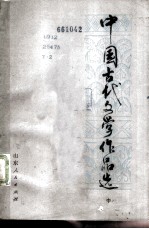 661042
中国古代文学作品选
中
山东人民出版社